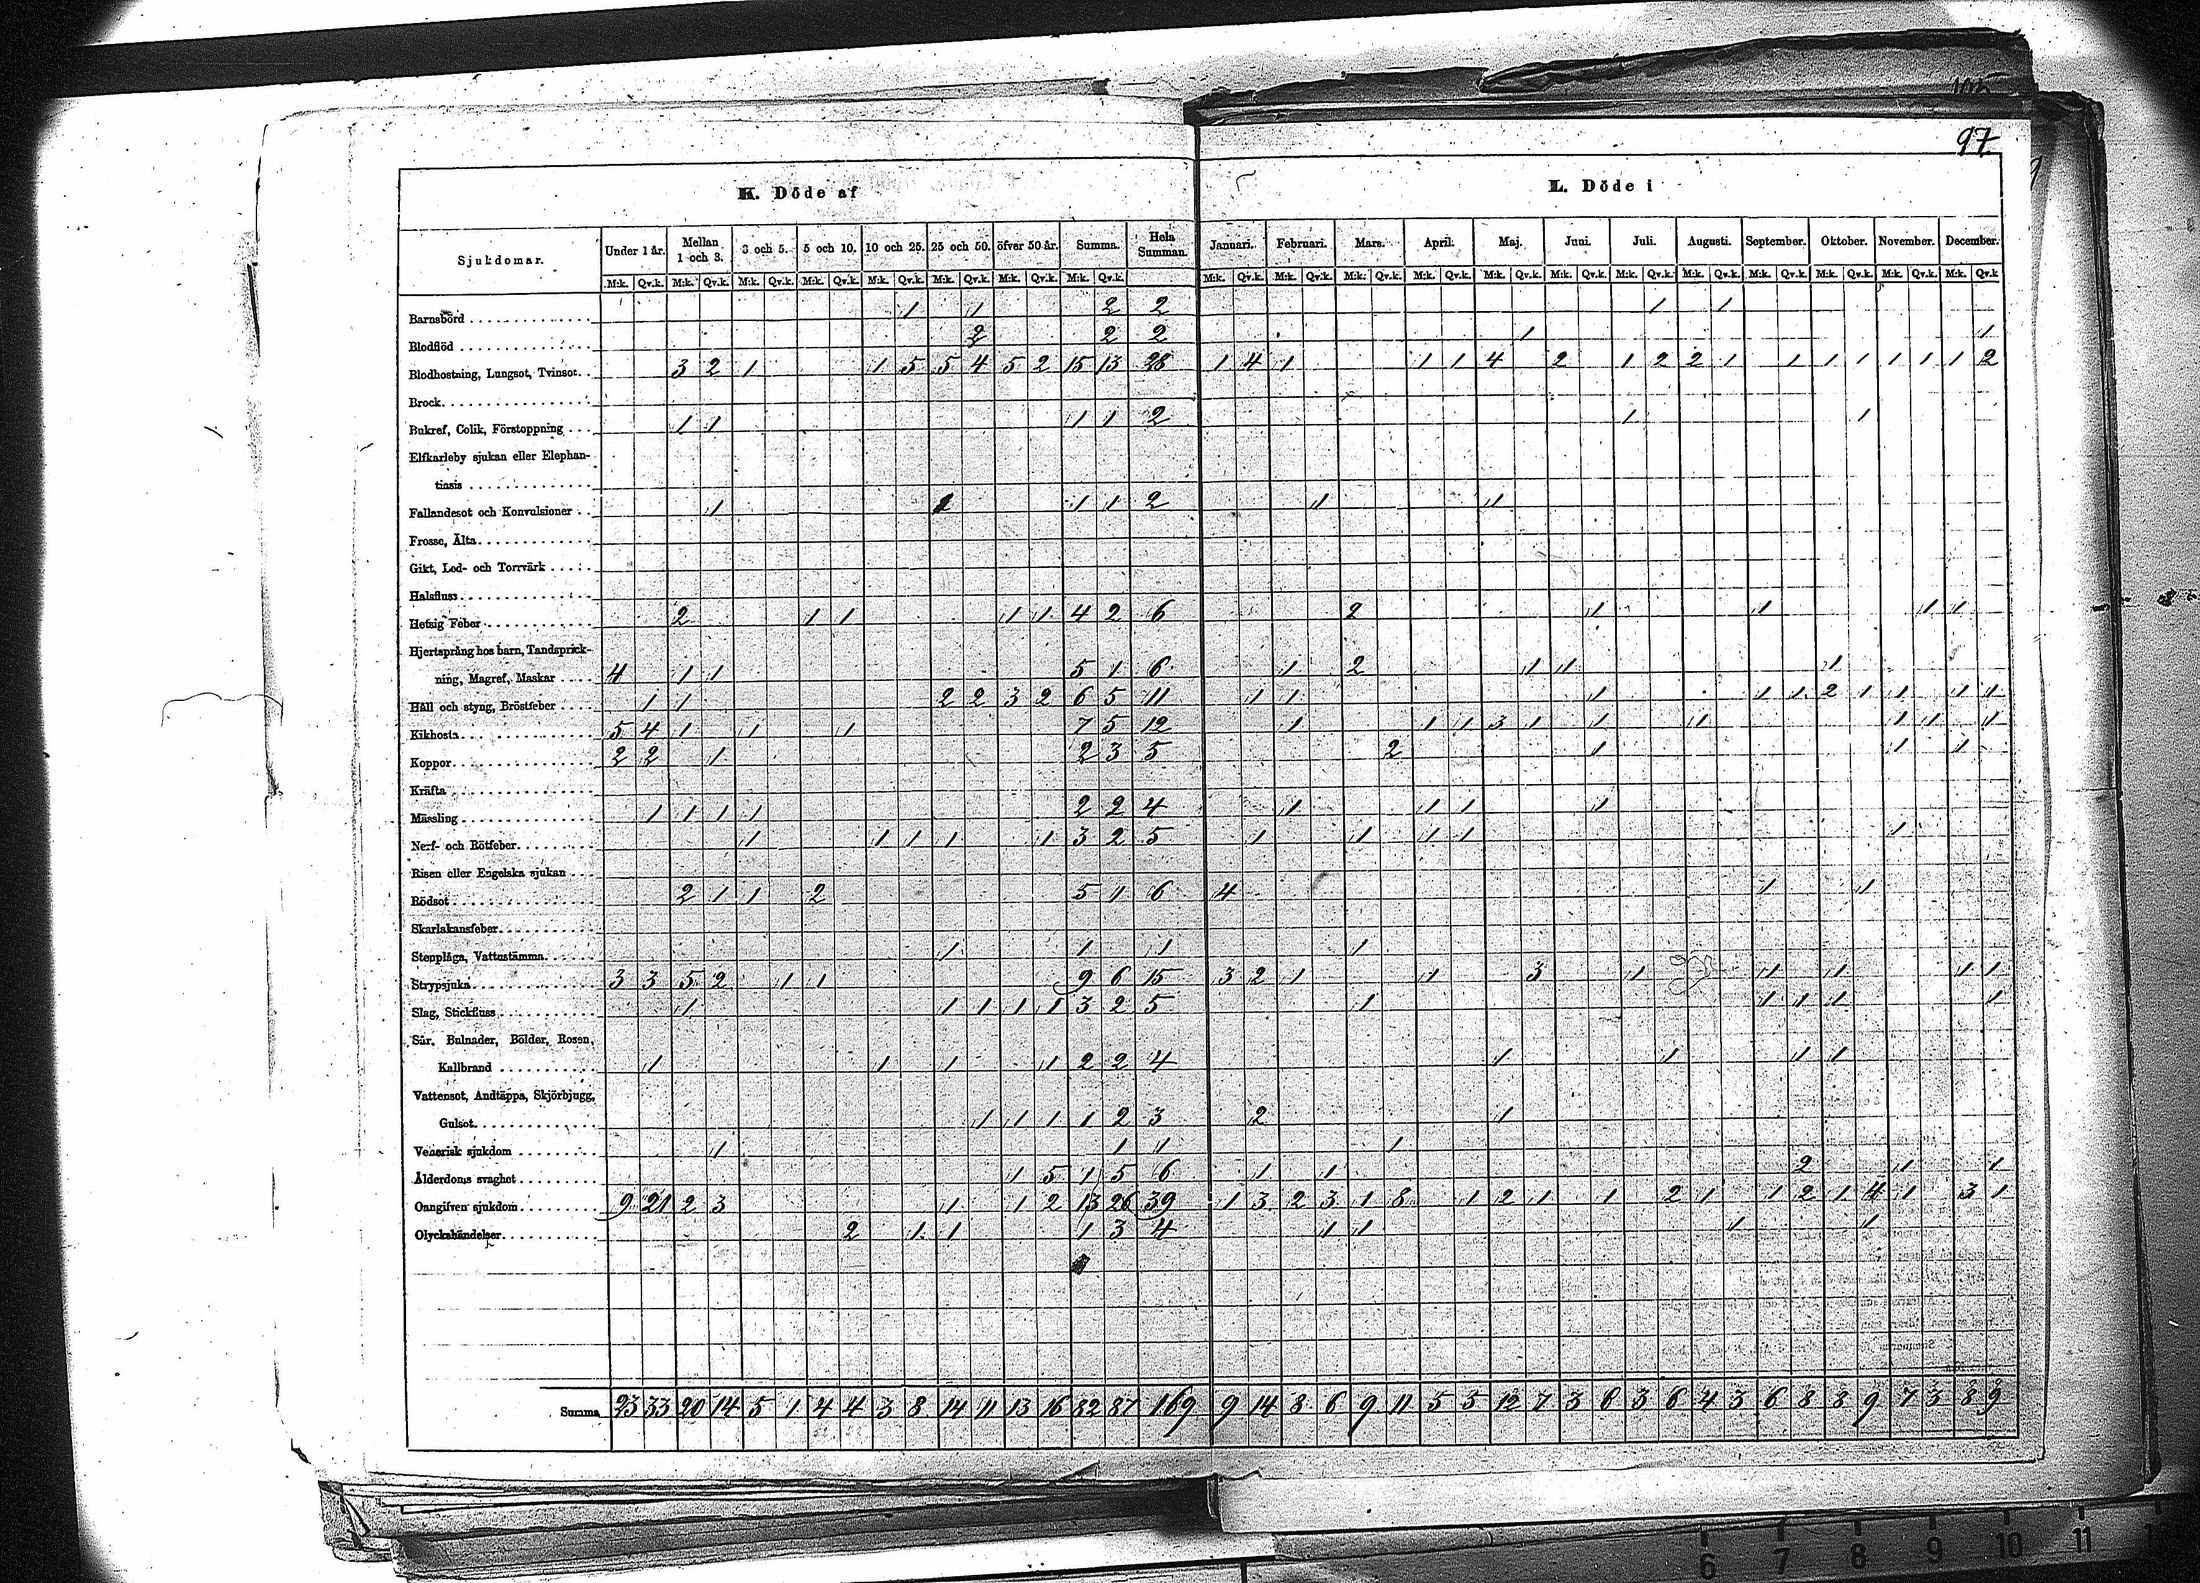 105
97
K. Döde af L. Döde i
Sjukdomar. Under 1 år. Mellan 1 och 3. 3 och 5. 5 och 10. 10 och 25. 25 och 50. öfver 50 år. Summa. Hela Summan. Januari. Februari. Mars. April. Maj. Juni. Juli. Augusti. September. Oktober. November. December.
M:k. Qv.k. M:k. Qv.k. M:k. Qv.k. M:k. Qv.k. M:k. Qv.k. M:k. Qv.k. M:k. Qv.k. M:k. Qv.k. M:k. Qv.k. M:k. Qv.k. M:k. Qv.k. M:k. Qv.k. M:k. Qv.k. M:k. Qv.k. M:k. Qv.k. M:k. Qv.k. M:k. Qv.k. M:k. Qv.k. M:k. Qv.k. M:k. Qv.k
Barnsbörd 1 1 2 2 1 1
Blodflöd 2 2 2 1 1
Blodhostning, Lungsot, Tvinsot. 3 2 1 1 5 5 4 5 2 15 13 28 1 4 1 1 1 4 2 1 2 2 1 1 1 1 1 1 1 2
Brock
Bukref, Colik, Förstoppning 1 1 1 1 2 1 1
Elfkarleby sjukan eller Elephan-
tiasis
Fallandesot och Konvulsioner 1 1 1 1 2 1 1
Frosse, Älta
Gikt, Led- och Torrvärk
Halsfluss
Hetsig Feber 2 1 1 1 1 4 2 6 2 1 1 1 1
Hjertsprång hos barn, Tandsprick-
ning, Magref, Maskar 4 1 1 5 1 6 1 2 1 1 1
Håll och styng, Bröstfeber 1 1 2 2 3 2 6 5 11 1 1 1 1 1 2 1 1 1 1
Kikhosta 5 4 1 1 1 7 5 12 1 1 1 3 1 1 1 1 1 1
Koppor 2 2 1 2 3 5 2 1 1 1
Kräfta
Mässling 1 1 1 1 2 2 4 1 1 1 1
Nerf- och Rötfeber 1 1 1 1 1 3 2 5 1 1 1 1 1
Risen eller Engelska sjukan
Rödsot 2 1 1 2 5 1 6 4 1 1
Skarlakansfeber
Stenplåga, Vattustämma 1 1 1 1
Strypsjuka 3 3 5 2 1 1 9 6 15 3 2 1 1 3 1 1 1 1 1
Slag, Stickfluss 1 1 1 1 1 3 2 5 1 1 1 1 1
Sår, Bulnader, Bölder, Rosen,
Kallbrand 1 1 1 1 2 2 4 1 1 1 1
Vattensot, Andtäppa, Skjörbjugg,
Gulsot 1 1 1 1 2 3 2 1
Venerisk sjukdom 1 1 1 1
Ålderdoms svaghet 1 5 1 5 6 1 1 2 1 1
Oangifven sjukdom 9 21 2 3 1 1 2 13 26 39 1 3 2 3 1 8 1 2 1 1 2 1 1 2 1 4 1 3 1
Olyckshändelser 2 1 1 1 3 4 1 1 1 1
Summa 23 33 20 14 5 1 4 4 3 8 14 11 13 16 82 87 169 9 14 8 6 9 11 5 5 12 7 3 6 3 6 4 3 6 8 8 9 7 3 8 9
6 7 8 9 10 11